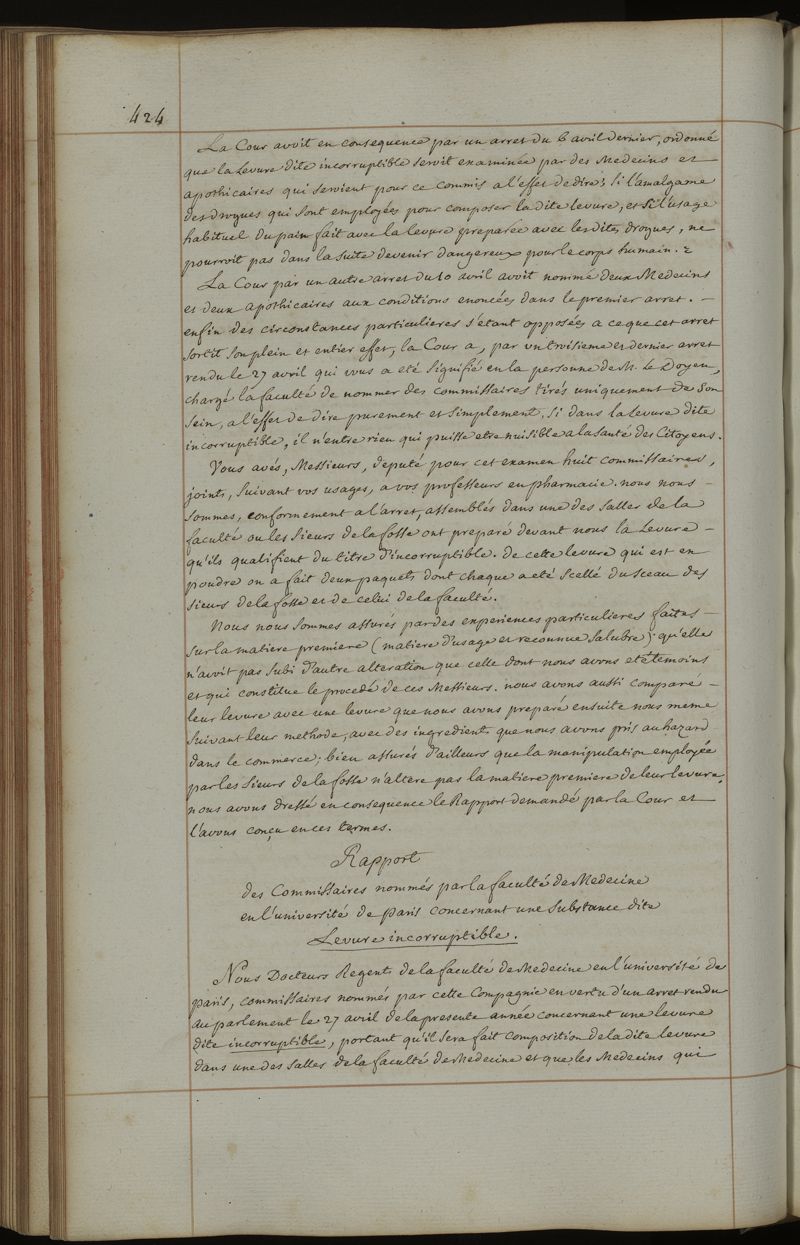 424
La Cour avoit en consequence par un arret du 6 avril dernier, ordonné
que la Levure dite incorruptible seroit examinée par des Medecins et
apothicaires qui seroient pour ce commis a l'effet de dire; Si l'amalgame
des drogues qui sont employées pour composer la dite levure, et Si l'usage
habituel du pain fait avec la levure preparée avec les dites drogues, ne
pourroit pas dans la suite devenir dangereux pour le corps humain.
La Cour par un autre arret du 10 avril avoit nommé deux Medecins
et deux apothicaires aux conditions enoncées dans le premier arret. –
enfin des circonstances particulieres s'etant opposées a ce que cet arret
sortit son plein et entier effet, la Cour a, par un troisieme et dernier arret
rendu le 27 avril qui vous a eté signifié en la personne de M. le Doyen,
chargé la faculté de nommer des commissaires tirés uniquement de Son
Sein, a l'effet de dire purement et simplement, Si dans la levure dite
incorruptible, il n'entre rien qui puisse etre nuisible a la santé des Citoyens.
Vous avés, Messieurs, deputé pour cet examen huit commissaires,
joints, Suivant vos usages, a vos professeurs en pharmacie. nous nous –
Sommes, conformement a l'arret, assemblés dans une des Salles de la
faculté ou les Sieurs de la fosse ont preparé devant nous la Levure –
qu'ils qualifient du titre d'incorruptible. de cette levure qui est en
poudre on a fait deux paquets dont chaque a eté Scellé du Sceau des
Sieurs de la fosse et de celui de la faculté.
Nous nous Sommes assurés par des experiences particulieres faites –
Sur la matiere premiere (matiere d'usage et reconnue Salubre) qu'elle
n'avoit pas subi d'autre alteration que celle dont nous avons eté temoins
et qui constitue le procedé de ces Messieurs. nous avons aussi comparé –
leur levure avec une levure que nous avons preparé ensuite nous meme
Suivant leur methode, avec des ingredients que nous avons pris au hazard
dans le commerce; bien assurés d'ailleurs que la manipulation employée
par les Sieurs de la fosse n'altere pas la matiere premiere de leur levure,
nous avons dressé en consequence le Rapport demandé par la Cour et
l'avons conçu en ces termes.
Rapport
des Commissaires nommés par la faculté de Medecine
en l'université de Paris concernant une Substance dite
Levure incorruptible.
Nous Docteurs Regents de la faculté de Medecine en l'université de
paris, commissaires nommés par cette Compagnie en vertu d'un arret rendu
au parlement le 27 avril de la presente année concernant une levure
dite incorruptible, portant qu'il sera fait composition de la dite levure
dans une des Salles de la faculté de Medecine et que les Medecins qui